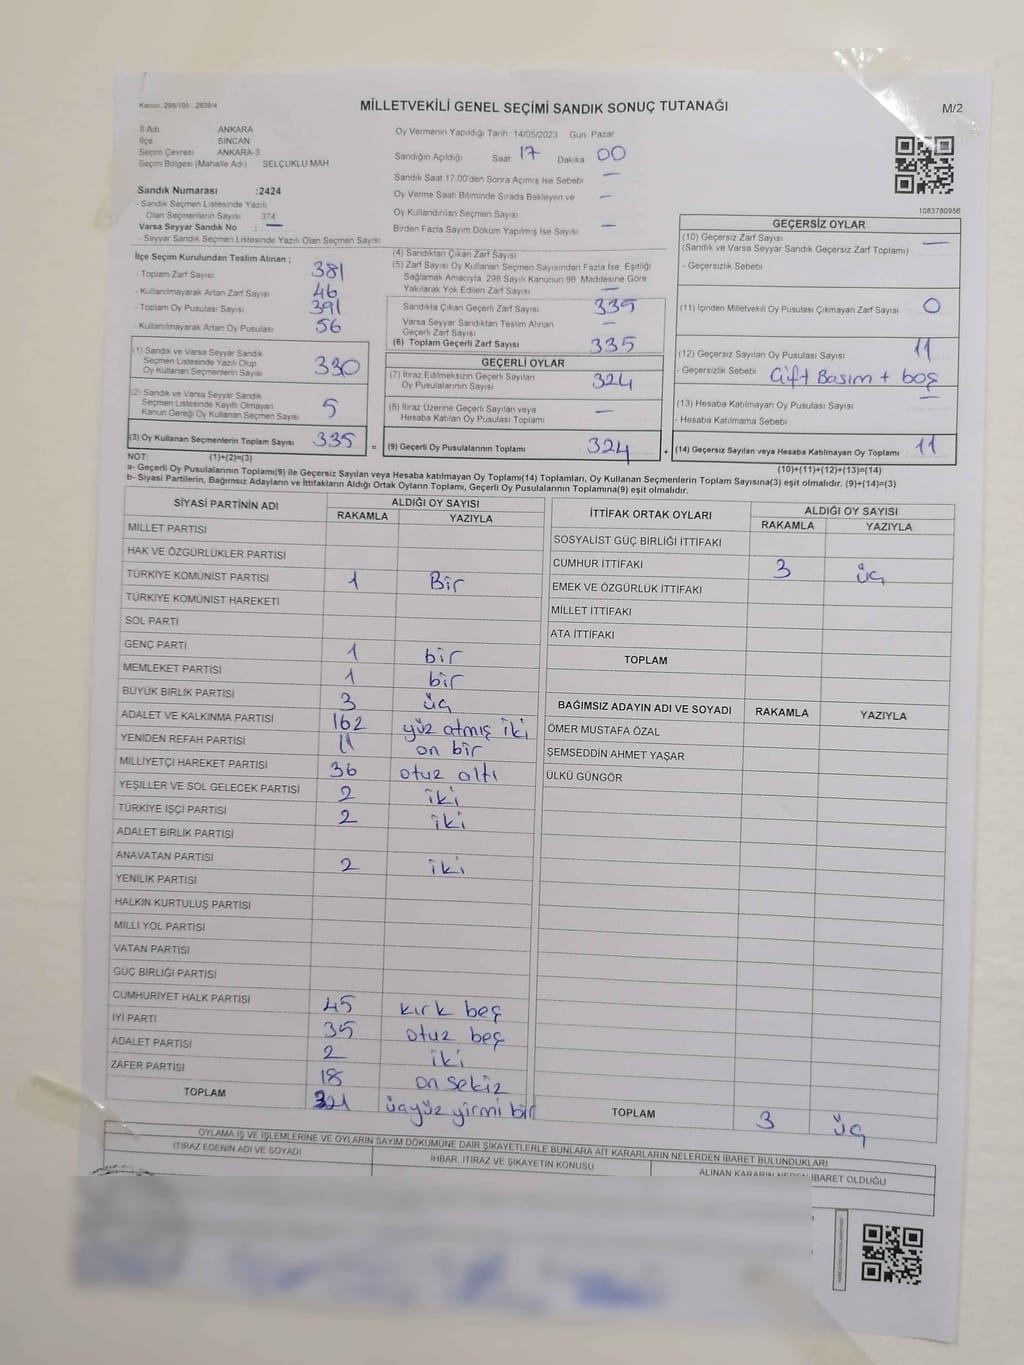 Kanun: 298/105 2839/4
MİLLETVEKİLİ GENEL SEÇİMİ SANDIK SONUÇ TUTANAĞI
M/2
İl Adı ANKARA
İlçe SİNCAN
Seçim Çevresi ANKARA-3
Seçim Bölgesi (Mahalle Adı) SELÇUKLU MAH.
Sandık Numarası :2424
- Sandık Seçmen Listesinde Yazılı
Olan Seçmenlerin Sayısı 374
Varsa Seyyar Sandık No : —
- Seyyar Sandık Seçmen Listesinde Yazılı Olan Seçmen Sayısı
Oy Vermenin Yapıldığı Tarih 14/05/2023 Gün Pazar
Sandığın Açıldığı Saat 17 Dakika 00
Sandık Saat 17.00'den Sonra Açılmış İse Sebebi —
Oy Verme Saati Bitiminde Sırada Bekleyen ve —
Oy Kullandırılan Seçmen Sayısı
Birden Fazla Sayım Döküm Yapılmış İse Sayısı —
1083780956
İlçe Seçim Kurulundan Teslim Alınan ;
- Toplam Zarf Sayısı 381
- Kullanılmayarak Artan Zarf Sayısı 46
- Toplam Oy Pusulası Sayısı 391
- Kullanılmayarak Artan Oy Pusulası 56
(1) Sandık ve Varsa Seyyar Sandık
Seçmen Listesinde Yazılı Olup
Oy Kullanan Seçmenlerin Sayısı 330
(2) Sandık ve Varsa Seyyar Sandık
Seçmen Listesinde Kayıtlı Olmayan
Kanun Gereği Oy Kullanan Seçmen Sayısı 5
(3) Oy Kullanan Seçmenlerin Toplam Sayısı 335 =
(4) Sandıktan Çıkan Zarf Sayısı
(5) Zarf Sayısı Oy Kullanan Seçmen Sayısından Fazla İse, Eşitliği
Sağlamak Amacıyla 298 Sayılı Kanunun 98. Maddesine Göre
Yakılarak Yok Edilen Zarf Sayısı —
Sandıkta Çıkan Geçerli Zarf Sayısı 335
Varsa Seyyar Sandıktan Teslim Alınan
Geçerli Zarf Sayısı —
(6) Toplam Geçerli Zarf Sayısı 335
GEÇERLİ OYLAR
(7) İtiraz Edilmeksizin Geçerli Sayılan
Oy Pusulalarının Sayısı 324
(8) İtiraz Üzerine Geçerli Sayılan veya
Hesaba Katılan Oy Pusulası Toplamı —
(9) Geçerli Oy Pusulalarının Toplamı 324 +
GEÇERSİZ OYLAR
(10) Geçersiz Zarf Sayısı —
(Sandık ve Varsa Seyyar Sandık Geçersiz Zarf Toplamı)
- Geçersizlik Sebebi
(11) İçinden Milletvekili Oy Pusulası Çıkmayan Zarf Sayısı 0
(12) Geçersiz Sayılan Oy Pusulası Sayısı 11
- Geçersizlik Sebebi Çift Basım + boş
(13) Hesaba Katılmayan Oy Pusulası Sayısı —
- Hesaba Katılmama Sebebi
(14) Geçersiz Sayılan veya Hesaba Katılmayan Oy Toplamı 11
NOT: (1)+(2)=(3)
(10)+(11)+(12)+(13)=(14)
a- Geçerli Oy Pusulalarının Toplamı(9) ile Geçersiz Sayılan veya Hesaba Katılmayan Oy Toplamı(14) Toplamları, Oy Kullanan Seçmenlerin Toplam Sayısına(3) eşit olmalıdır. (9)+(14)=(3)
b- Siyasi Partilerin, Bağımsız Adayların ve İttifakların Aldığı Ortak Oyların Toplamı, Geçerli Oy Pusulalarının Toplamına(9) eşit olmalıdır.
SİYASİ PARTİNİN ADI ALDIĞI OY SAYISI
RAKAMLA YAZIYLA
MİLLET PARTİSİ
HAK VE ÖZGÜRLÜKLER PARTİSİ
TÜRKİYE KOMÜNİST PARTİSİ 1 Bir
TÜRKİYE KOMÜNİST HAREKETİ
SOL PARTİ
GENÇ PARTİ 1 bir
MEMLEKET PARTİSİ 1 bir
BÜYÜK BİRLİK PARTİSİ 3 üç
ADALET VE KALKINMA PARTİSİ 162 yüz atmış iki
YENİDEN REFAH PARTİSİ 11 on bir
MİLLİYETÇİ HAREKET PARTİSİ 36 otuz altı
YEŞİLLER VE SOL GELECEK PARTİSİ 2 iki
TÜRKİYE İŞÇİ PARTİSİ 2 iki
ADALET BİRLİK PARTİSİ
ANAVATAN PARTİSİ 2 iki
YENİLİK PARTİSİ
HALKIN KURTULUŞ PARTİSİ
MİLLİ YOL PARTİSİ
VATAN PARTİSİ
GÜÇ BİRLİĞİ PARTİSİ
CUMHURİYET HALK PARTİSİ 45 kırk beş
İYİ PARTİ 35 otuz beş
ADALET PARTİSİ 2 iki
ZAFER PARTİSİ 18 on sekiz
TOPLAM 321 üçyüz yirmi bir
İTTİFAK ORTAK OYLARI ALDIĞI OY SAYISI
RAKAMLA YAZIYLA
SOSYALİST GÜÇ BİRLİĞİ İTTİFAKI
CUMHUR İTTİFAKI 3 üç
EMEK VE ÖZGÜRLÜK İTTİFAKI
MİLLET İTTİFAKI
ATA İTTİFAKI
TOPLAM
BAĞIMSIZ ADAYIN ADI VE SOYADI RAKAMLA YAZIYLA
ÖMER MUSTAFA ÖZAL
ŞEMSEDDİN AHMET YAŞAR
ÜLKÜ GÜNGÖR
TOPLAM 3 üç
OYLAMA İŞ VE İŞLEMLERİNE VE OYLARIN SAYIM DÖKÜMÜNE DAİR ŞİKAYETLERLE BUNLARA AİT KARARLARIN NELERDEN İBARET BULUNDUKLARI
İTİRAZ EDENİN ADI VE SOYADI İHBAR, İTİRAZ VE ŞİKAYETİN KONUSU ALINAN KARARIN NEDEN İBARET OLDUĞU